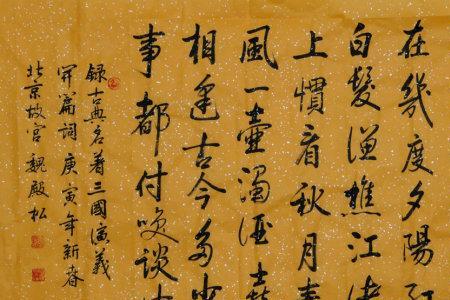 在幾度夕陽紅
白髮漁樵江渚
上慣看秋月春
風一壺濁酒喜
相逢古今多少
事都付咲談中
録古典名著三國演義
開篇詞庚寅年新春
北京故宮魏殿松